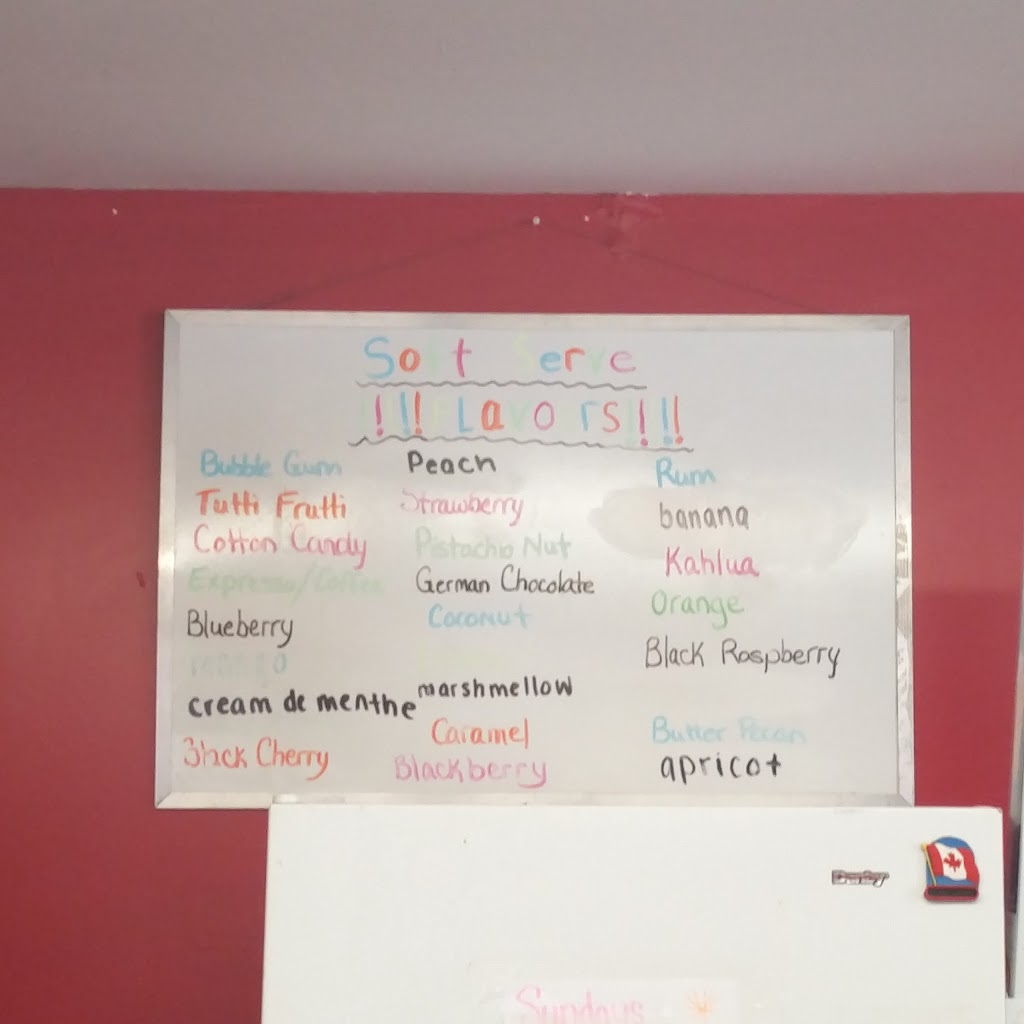 Soft Serve
!!! Flavors!!!
Bubble Gum
Tutti Frutti
Cotton Candy
Expresso/Coffee
Blueberry
mango
cream de menthe
Black Cherry
Peach
Strawberry
Pistachio Nut
German Chocolate
Coconut
marshmellow
Caramel
Blackberry
Rum
banana
Kahlua
Orange
Black Raspberry
Butter Pecan
apricot
Danby
Sundays